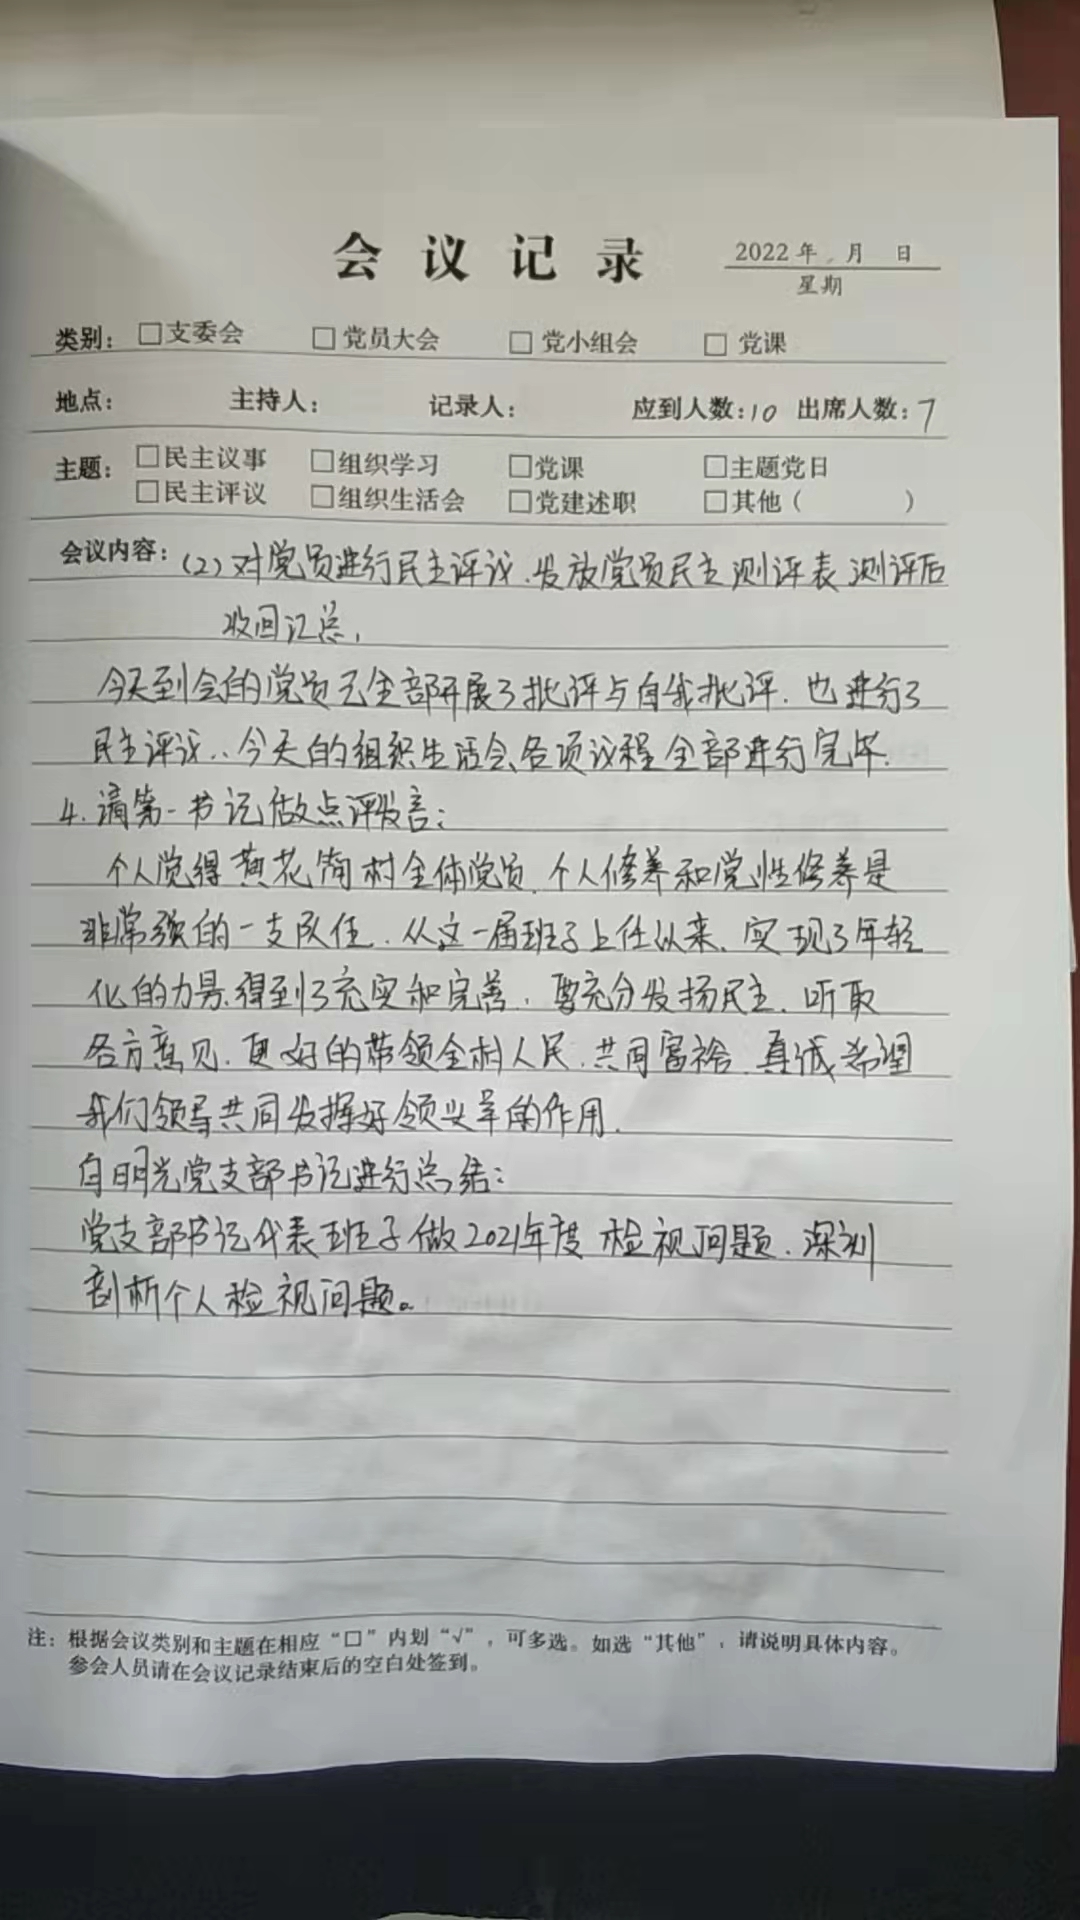 会议记录
2022年 月 日
星期
类别： □支委会 □党员大会 □党小组会 □党课
地点： 主持人： 记录人： 应到人数：10 出席人数：7
主题： □民主议事 □组织学习 □党课 □主题党日
□民主评议 □组织生活会 □党建述职 □其他（ ）
会议内容：(2)对党员进行民主评议.发放党员民主测评表测评后
收回汇总，
今天到会的党员已全部开展了批评与自我批评.也进行了
民主评议..今天的组织生活会各项议程全部进行完毕.
4.请第一书记做点评发言：
个人觉得黄花 村全体党员.个人修养和党性修养是
非常强的一支队伍.从这一届班子上任以来.实现了年轻
化的力量得到了充实和完善.要充分发扬民主.听取
各方意见.更好的带领全村人民.共同富裕.真诚希望
我们领导共同发挥好领头羊的作用.
白明光党支部书记进行总结：
党支部书记代表班子做2021年度检视问题.深刻
剖析个人检视问题。
注：根据会议类别和主题在相应“□”内划“√”，可多选。如选“其他”，请说明具体内容。
参会人员请在会议记录结束后的空白处签到。